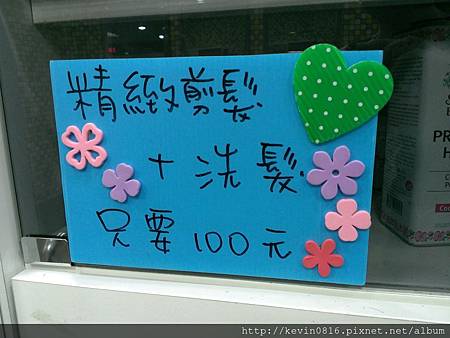 精緻剪髮
+洗髮
只要100元
PR
H
http://kevin0816.pixnet.net/album